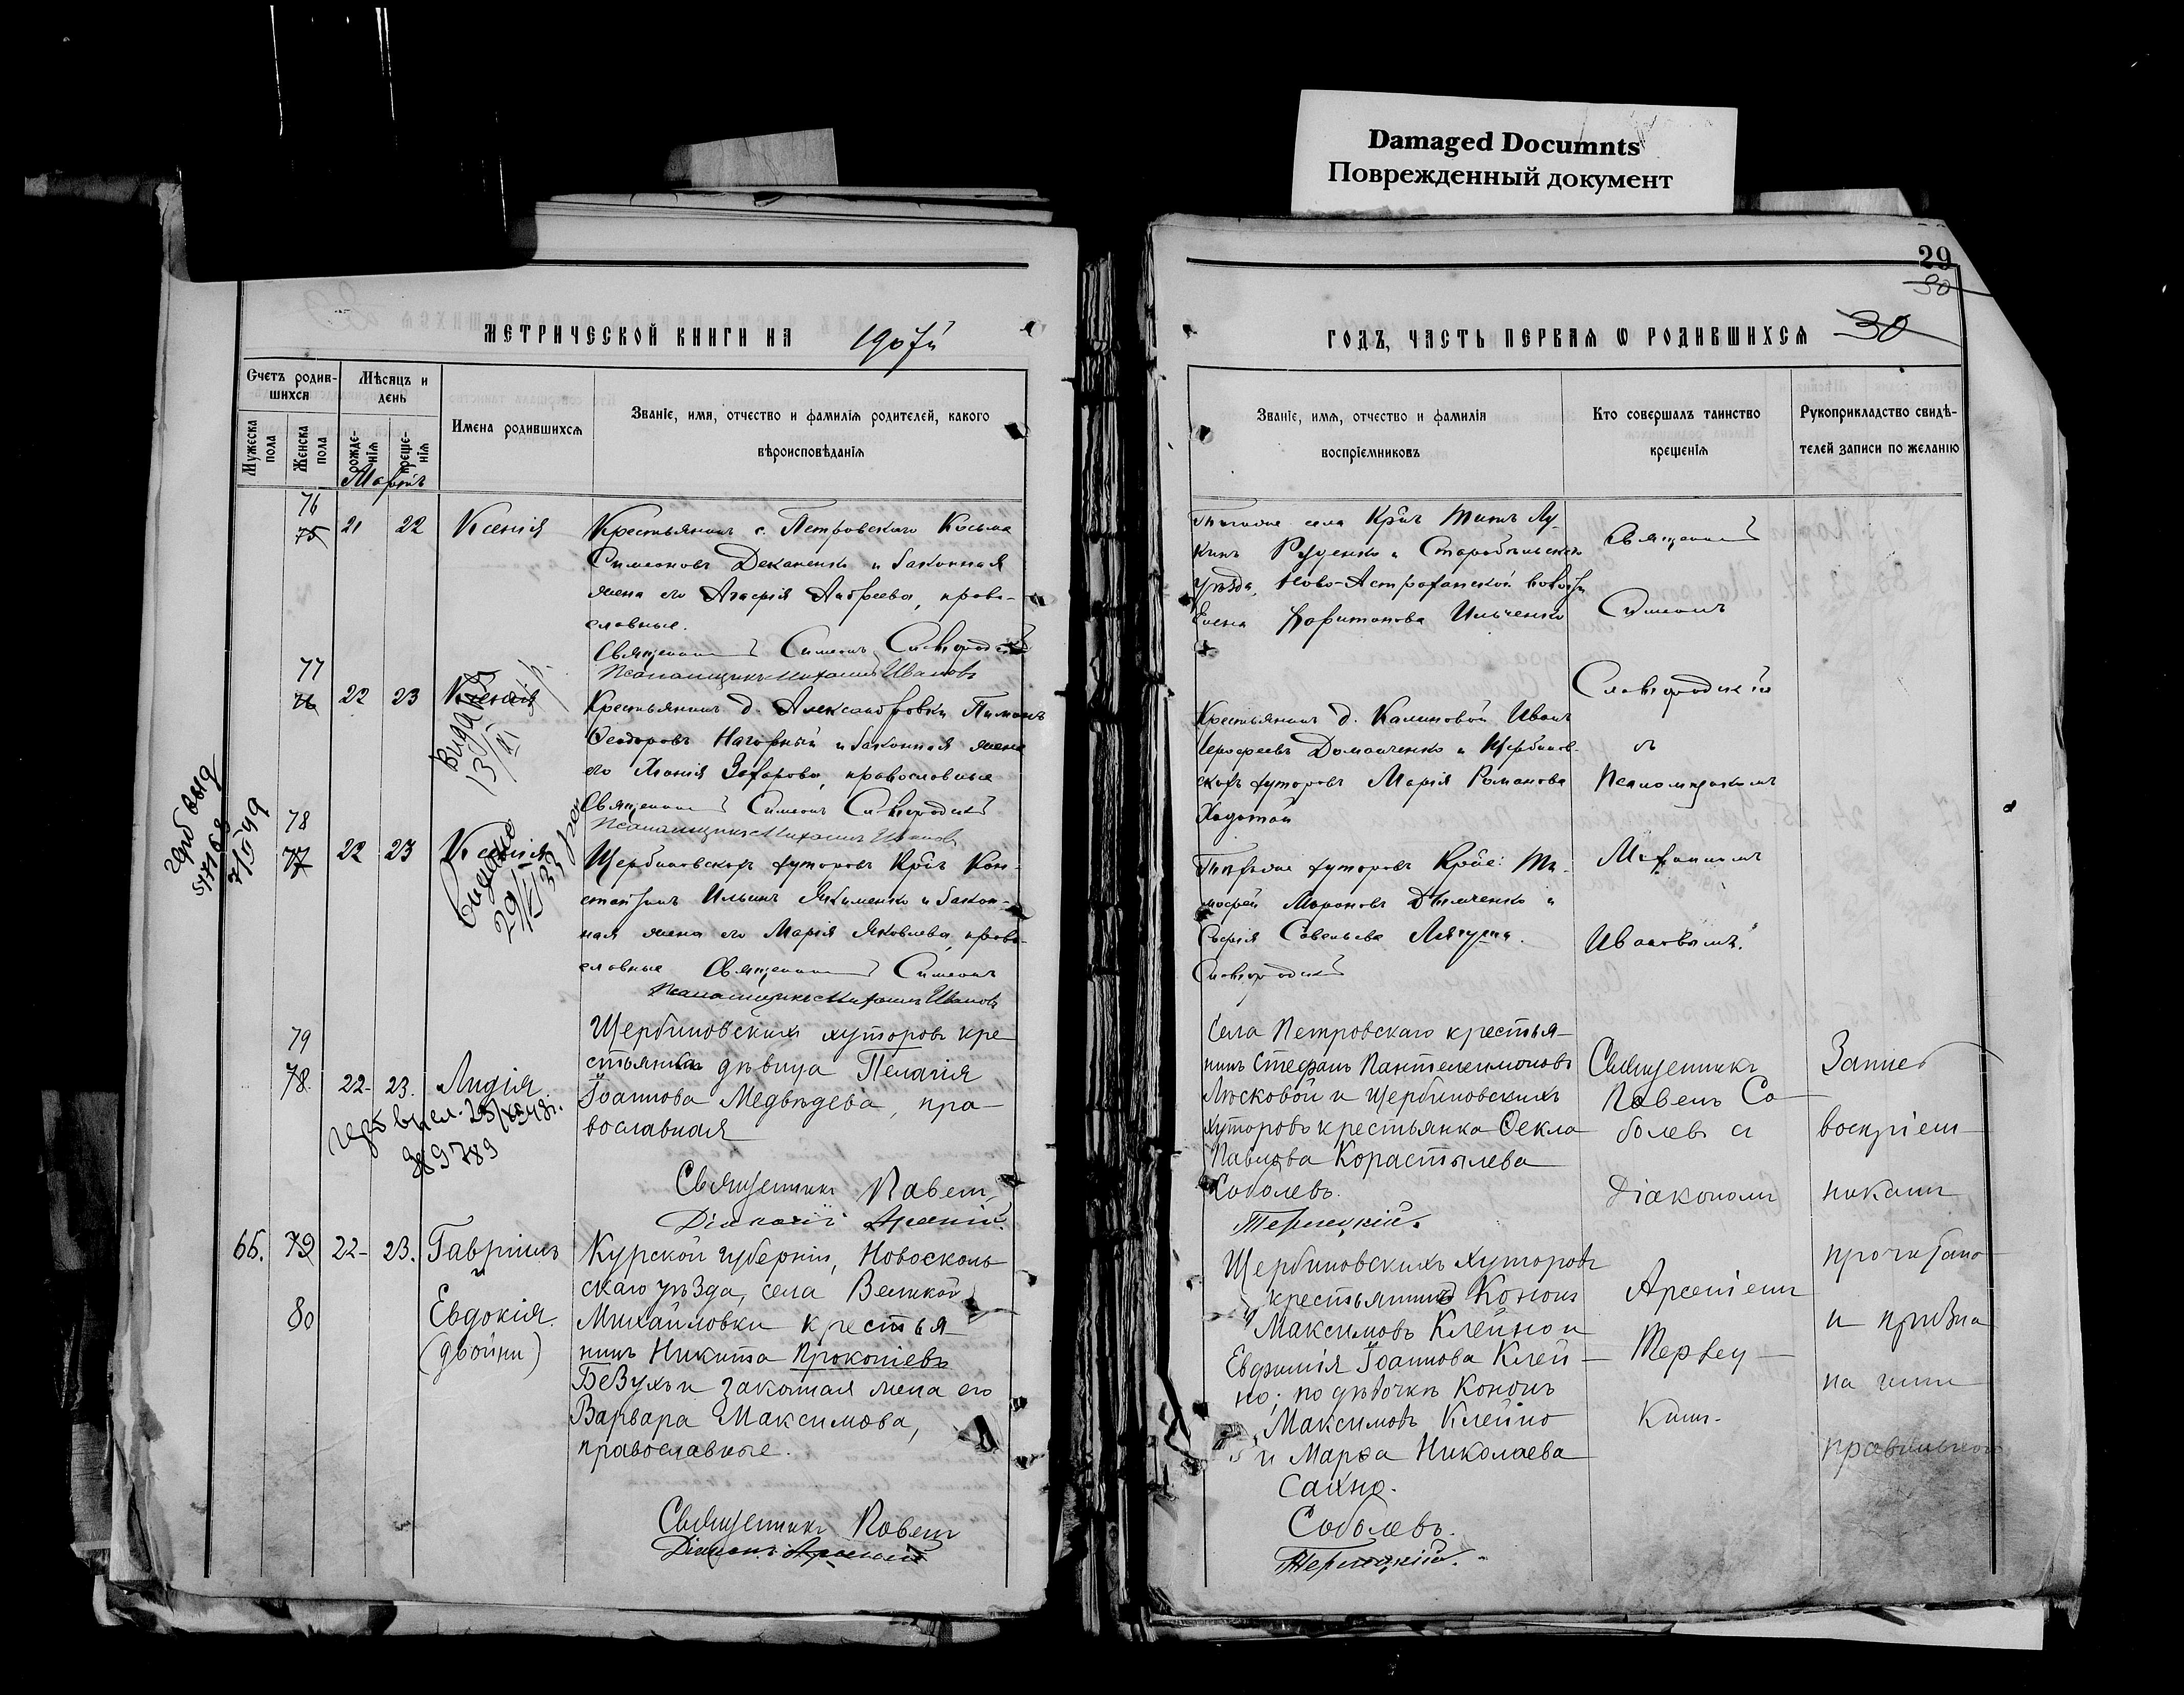 Damaged Documnts
Поврежденный документ
29
30
МЕТРИЧЕСКОЙ КНИГИ НА 1907й
ГОДЪ, ЧАСТЬ ПЕРВАЯ Ѡ РОДИВШИХСЯ
30
Счетъ родив-
шихся
Мужеска пола
Женска пола
Мѣсяцъ и
день
рожде-
нія
креще-
нія
Мартъ
Имена родившихся
Званіе, имя, отчество и фамилія родителей, какого
вѣроисповѣданія
Званіе, имя, отчество и фамилія
воспріемниковъ
Кто совершалъ таинство
крещенія
Рукоприкладство свидѣ-
телей записи по желанію
76
75 21 22 Ксенія
Крестьянинъ с. Петровскаго Косьма
Симеоновъ Деканенко и законная
жена его Агафія Андреева, право-
славные.
Священникъ Симеонъ
Псаломщикъ Михаилъ Ивановъ
села Крнъ Титъ Лу-
кинъ Руденко и Старобѣльскаго
уѣзда, Ново-Астраханской волости
Елена Харитонова Ильченко
Священникъ
Симеонъ
77
76 22 23 Ксенія
13/VI
Крестьянинъ д. Александровки Пименъ
Ѳеодоровъ Нагорный и законная жена
его Захарова, православные
Священникъ Симеонъ
Псаломщикъ Михаилъ Ивановъ
Крестьянинъ д. Калиновой Иванъ
Іерофеевъ Домашченко и Щербинов-
скихъ хуторовъ Марія Романова
съ
Псаломщикомъ
78
77 22 23 Ксенія
Щербиновскихъ хуторовъ Крнъ Кон-
стантинъ Ильинъ Якименко и закон-
ная жена его Марія Яковлева, право-
славные Священникъ Симеонъ
Псаломщикъ Михаилъ Ивановъ
хуторовъ Крне: Ти-
мофей Мироновъ Дымченко и
Софія Савельева
Михаиломъ
Ивановымъ.
79
78. 22- 23. Лидія
389789
Щербиновскихъ хуторовъ кре-
стьянка дѣвица Пелагія
Іоаннова Медвѣдева, пра-
вославная
Священникъ Павелъ
Діаконъ Арсеній
Села Петровскаго крестья-
нинъ Стефанъ Пантелеимоновъ
Лѣсковой и Щербиновскихъ
хуторовъ крестьянка Ѳекла
Павлова Корастылева
Соболевъ.
Терлецкій.
Священникъ
Павелъ Со-
болевъ съ
Діакономъ
Арсеніемъ
Терлец-
кимъ.
воспріем-
никами
прочитано
и призна
на ими
правильной
66. 79 22- 23. Гавріилъ
и
80 Евдокія.
(двойни)
Курской губерніи, Новосколь
скаго уѣзда, села Великой
Михайловки крестья-
нинъ Никита Прокопіевъ
Безухъ и законная жена его
Варвара Максимова,
православные.
Священникъ Павелъ
Діаконъ Арсеній
Щербиновскихъ хуторовъ
крестьянинъ Кононъ
Максимовъ Клейно и
Евфимія Іоаннова Клей-
но; по дѣвочкѣ Кононъ
Максимовъ Клейно
и Марѳа Николаева
Сахно.
Соболевъ.
Терлецкій.